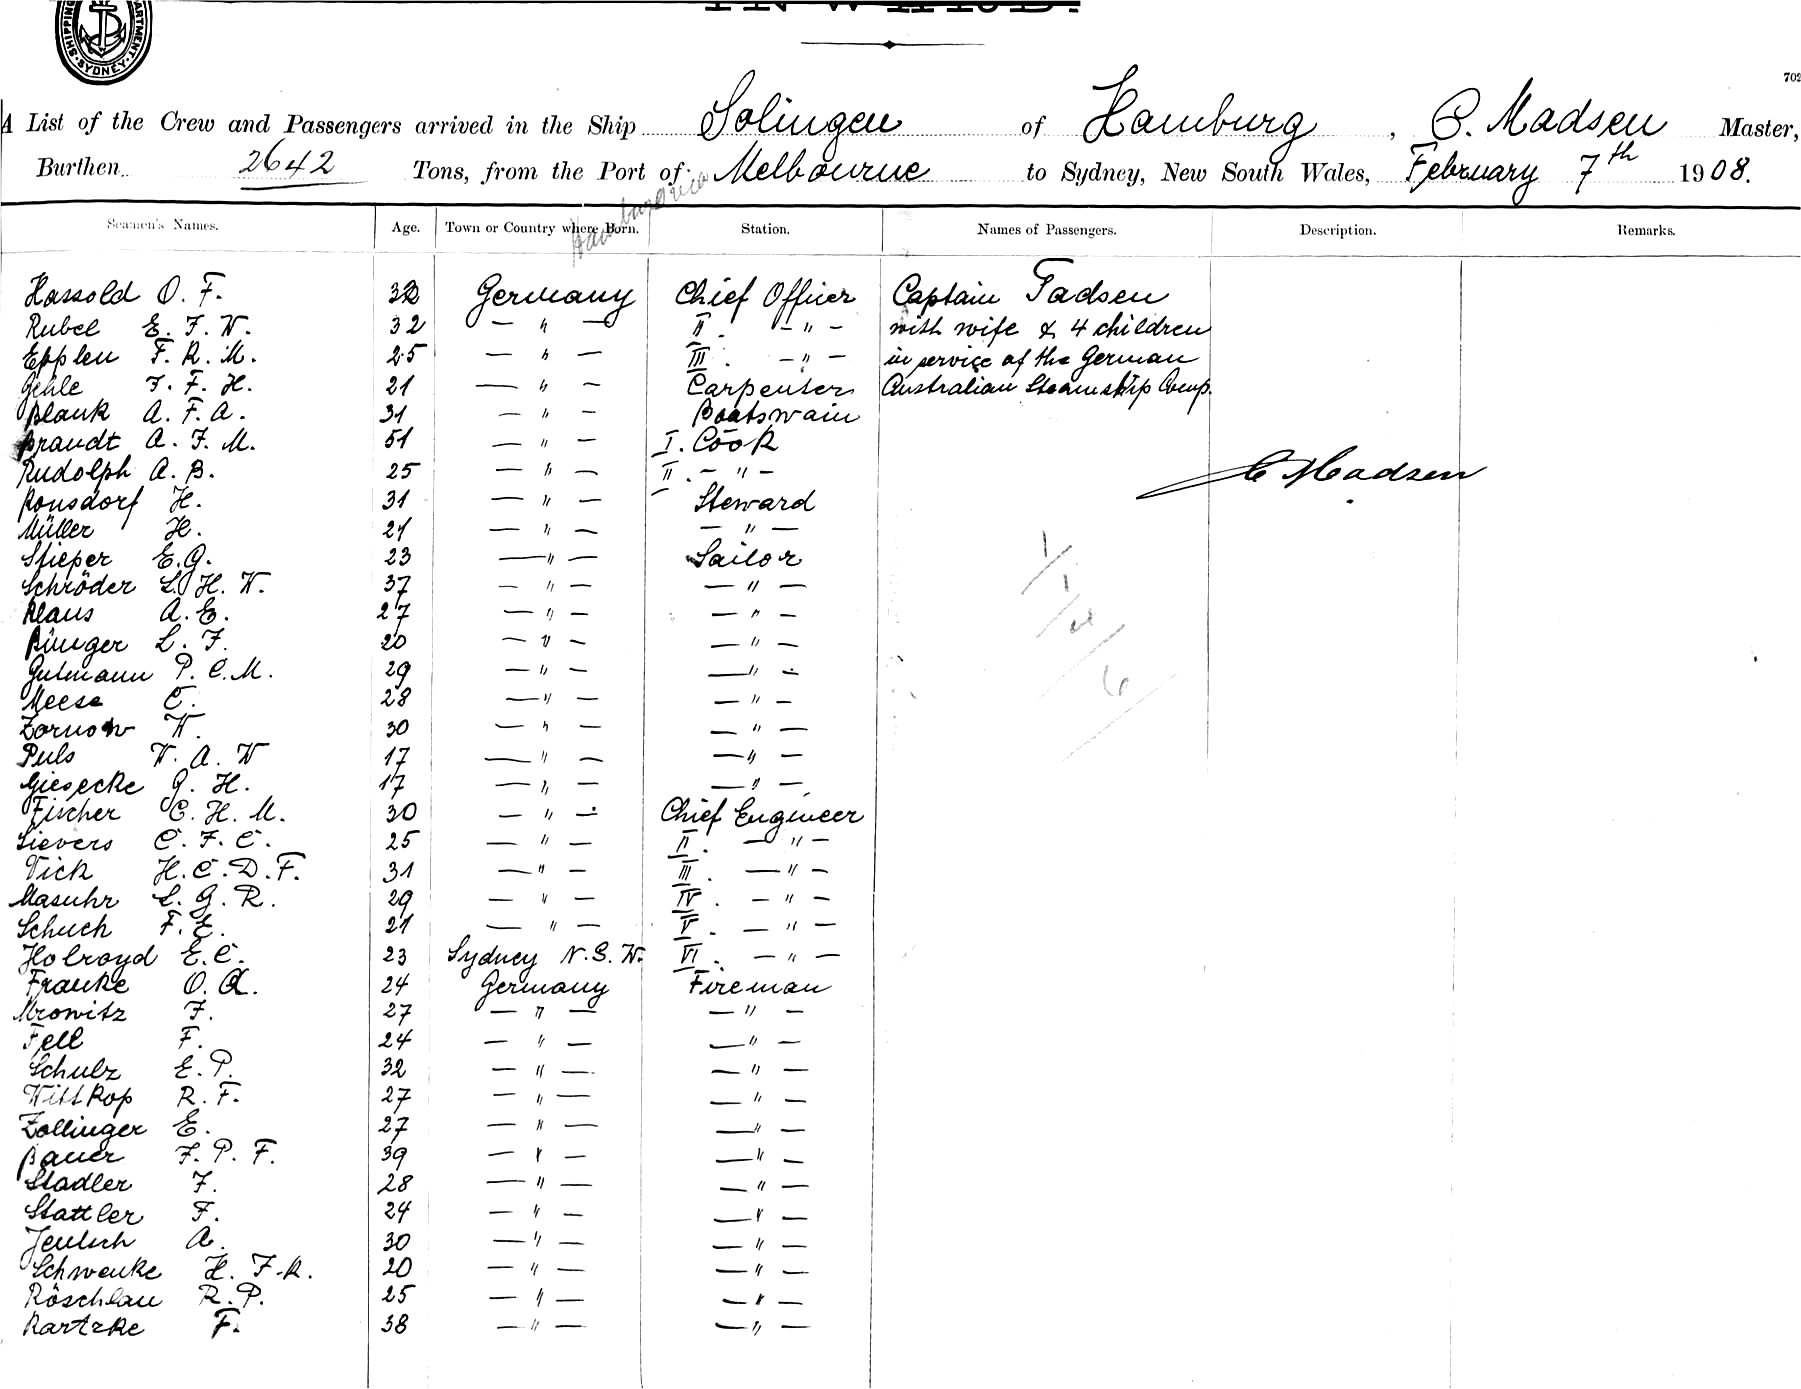 SHIPPING DEPARTMENT · SYDNEY ·
702
A List of the Crew and Passengers arrived in the Ship Solingen of Hamburg, C. Madsen Master,
Burthen 2642 Tons, from the Port of Melbourne to Sydney, New South Wales, February 7th 1908.
Seamen's Names. Age. Town or Country where Born. Station. Names of Passengers. Description. Remarks.
Hassold O. F. 32 Germany Chief Officer Captain Tadsen
Rubel E. F. W. 32 — " — II. — " — with wife & 4 children
Epplen F. R. M. 25 — " — III. — " — in service of the German
Gehle F. F. H. 21 — " — Carpenter Australian Steamship Comp.
Blank A. F. A. 31 — " — Boatswain
Brandt A. F. M. 51 — " — I. Cook
Rudolph A. B. 25 — " — II. — " — C Madsen
Ronsdorf H. 31 — " — Steward
Müller H. 21 — " — — " —
Stieper E. G. 23 — " — Sailor
Schröder L. H. W. 37 — " — — " —
Klaus A. E. 27 — " — — " —
Bünger L. F. 20 — " — — " —
Gutmann P. C. M. 29 — " — — " —
Meese C. 28 — " — — " —
Zornow W. 30 — " — — " —
Puls W. A. W 17 — " — — " —
Giesecke G. H. 17 — " — — " —
Fischer C. H. M. 30 — " — Chief Engineer
Sievers C. F. C. 25 — " — II. — " —
Vick H. C. D. F. 31 — " — III. — " —
Masuhr L. G. R. 29 — " — IV. — " —
Schuch F. E. 21 — " — V. — " —
Holroyd E. C. 23 Sydney N. S. W. VI. — " —
Franke O. A. 24 Germany Fireman
Mrowitz F. 27 — " — — " —
Fell F. 24 — " — — " —
Schulz E. P. 32 — " — — " —
Wittkop R. F. 27 — " — — " —
Zollinger E. 27 — " — — " —
Bauer F. P. F. 39 — " — — " —
Stadler F. 28 — " — — " —
Stattler F. 24 — " — — " —
Jentsch A. 30 — " — — " —
Schwenke H. F. R. 20 — " — — " —
Röschlau R. P. 25 — " — — " —
Kartzke F. 38 — " — — " —